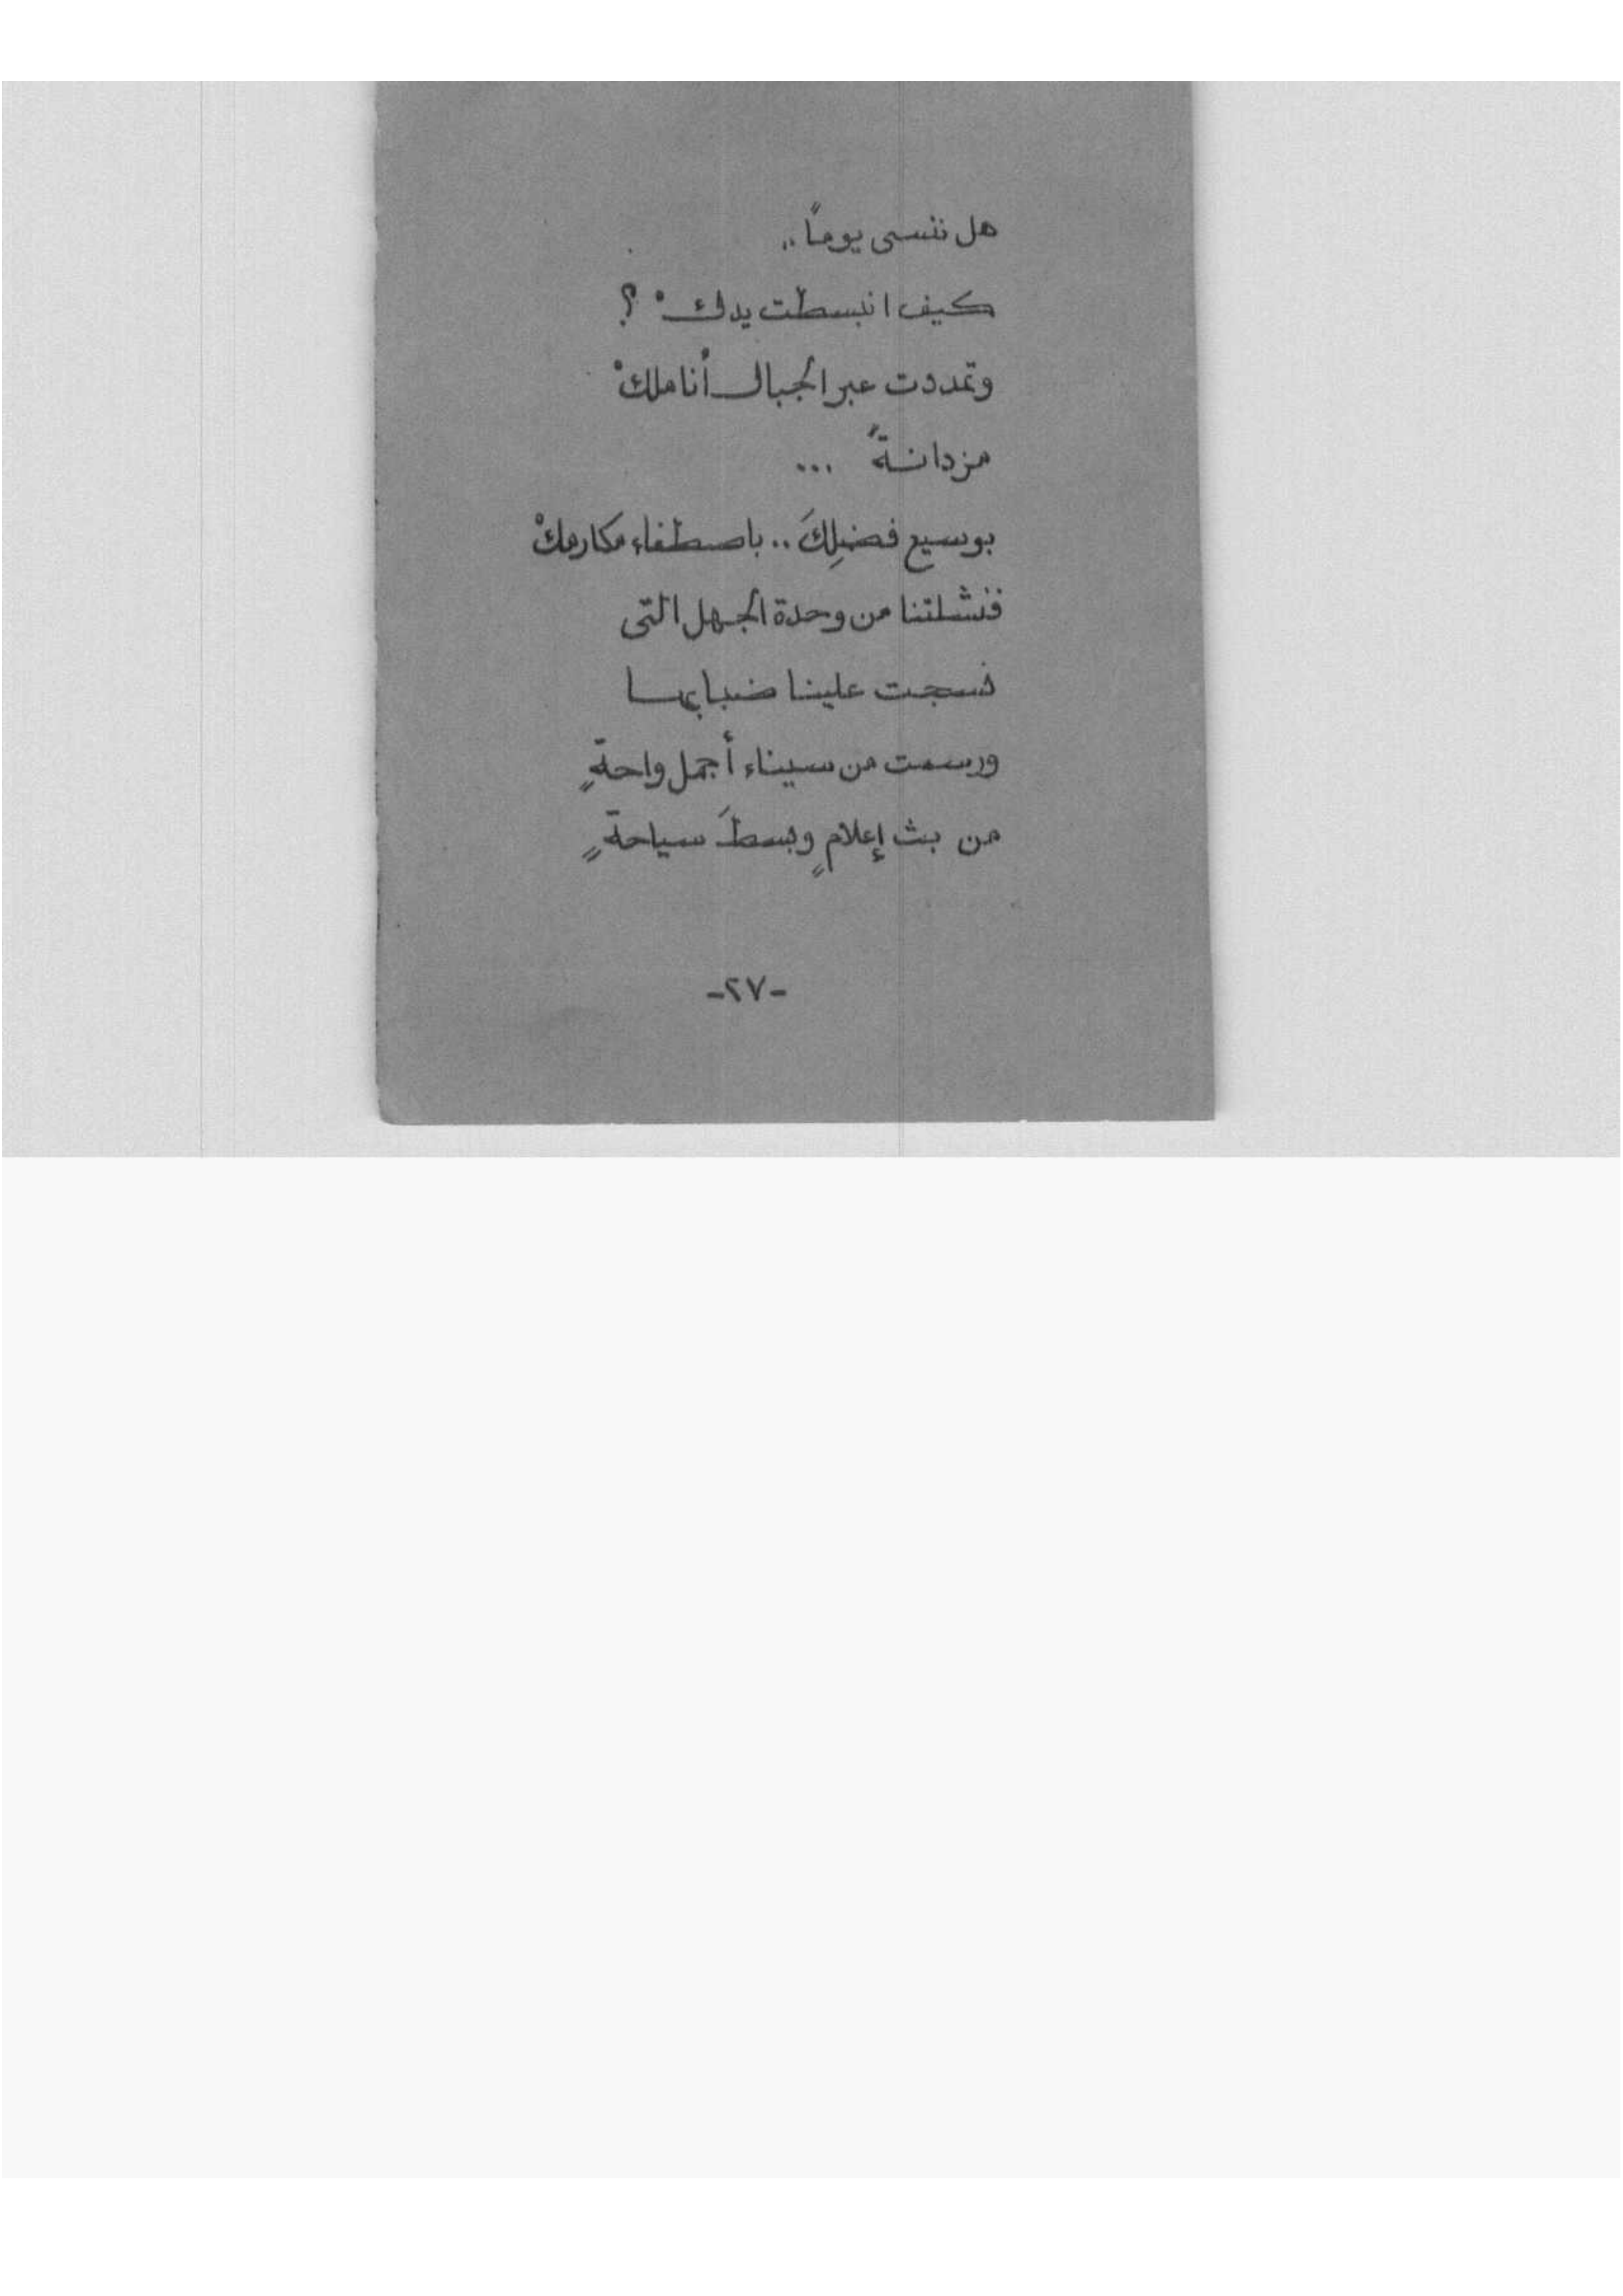 هل ننسى يوماً..
كيف انبسطت يدكْ ؟
وتمددت عبر الجبال أناملكْ
مزدانةً ...
بوسيع فضلِكَ .. باصطفاء مكارمكْ
فنشلتنا من وحدة الجهل التى
نسجت علينا ضبابها
ورسمت من سيناء أجمل واحةٍ
من بث إعلامٍ وبسطَ سياحةٍ
-٢٧-